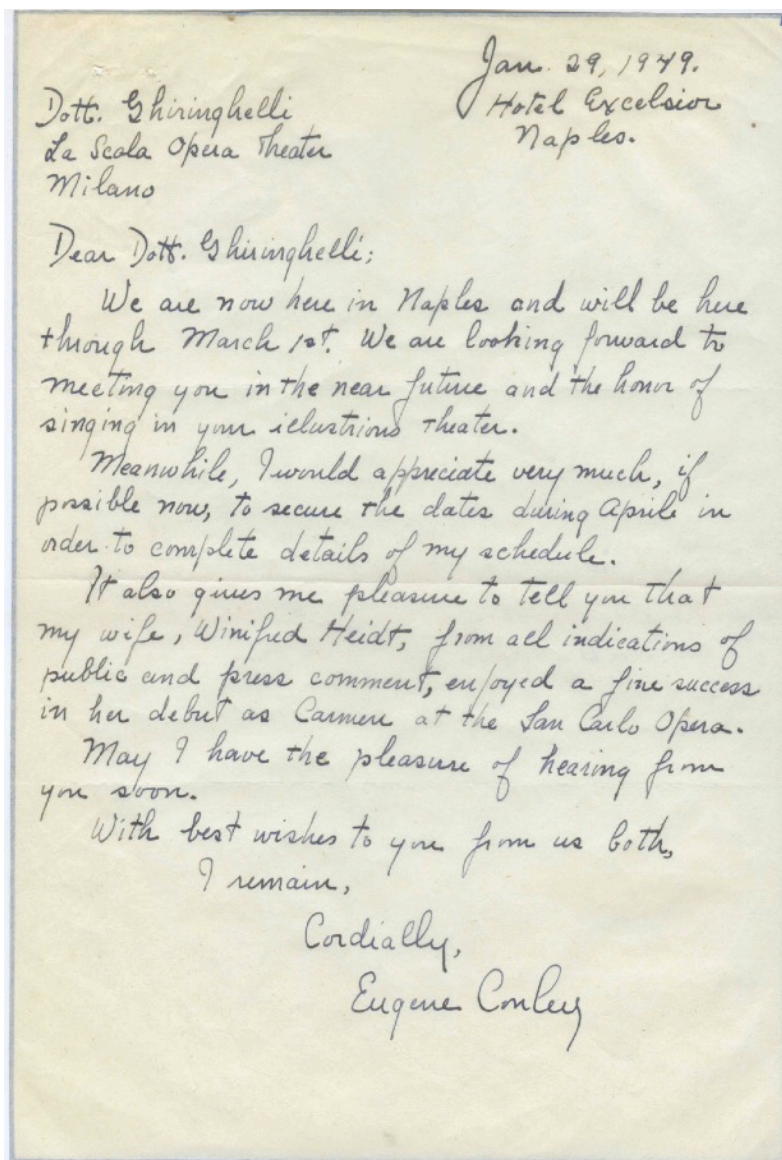 Jan. 29, 1949.
Hotel Excelsior
Naples.
Dott. Ghiringhelli
La Scala Opera Theater
Milano
Dear Dott. Ghiringhelli:
We are now here in Naples and will be here
through March 1st. We are looking forward to
meeting you in the near future and the honor of
singing in your illustrious theater.
Meanwhile, I would appreciate very much, if
possible now, to secure the dates during Aprile in
order to complete details of my schedule.
It also gives me pleasure to tell you that
my wife, Winifred Heidt, from all indications of
public and press comment, enjoyed a fine success
in her debut as Carmen at the San Carlo Opera.
May I have the pleasure of hearing from
you soon.
With best wishes to you from us both,
I remain,
Cordially,
Eugene Conley